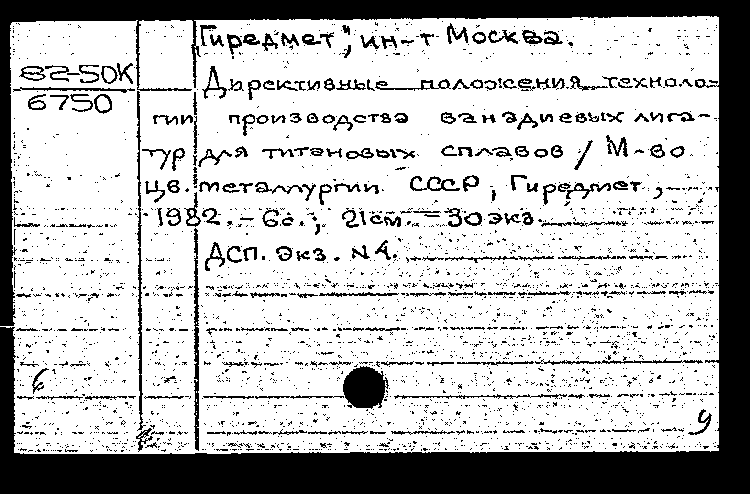 "Гиредмет", ин-т Москва.
82-50К
6750
Директивные положения техноло-
гии производства ванадиевых лига-
тур для титановых сплавов / М-во
цв. металлургии СССР, Гиредмет,
1982. - 6с.; 21см. - 30 экз.
ДСП. Экз. N 4.
6
9